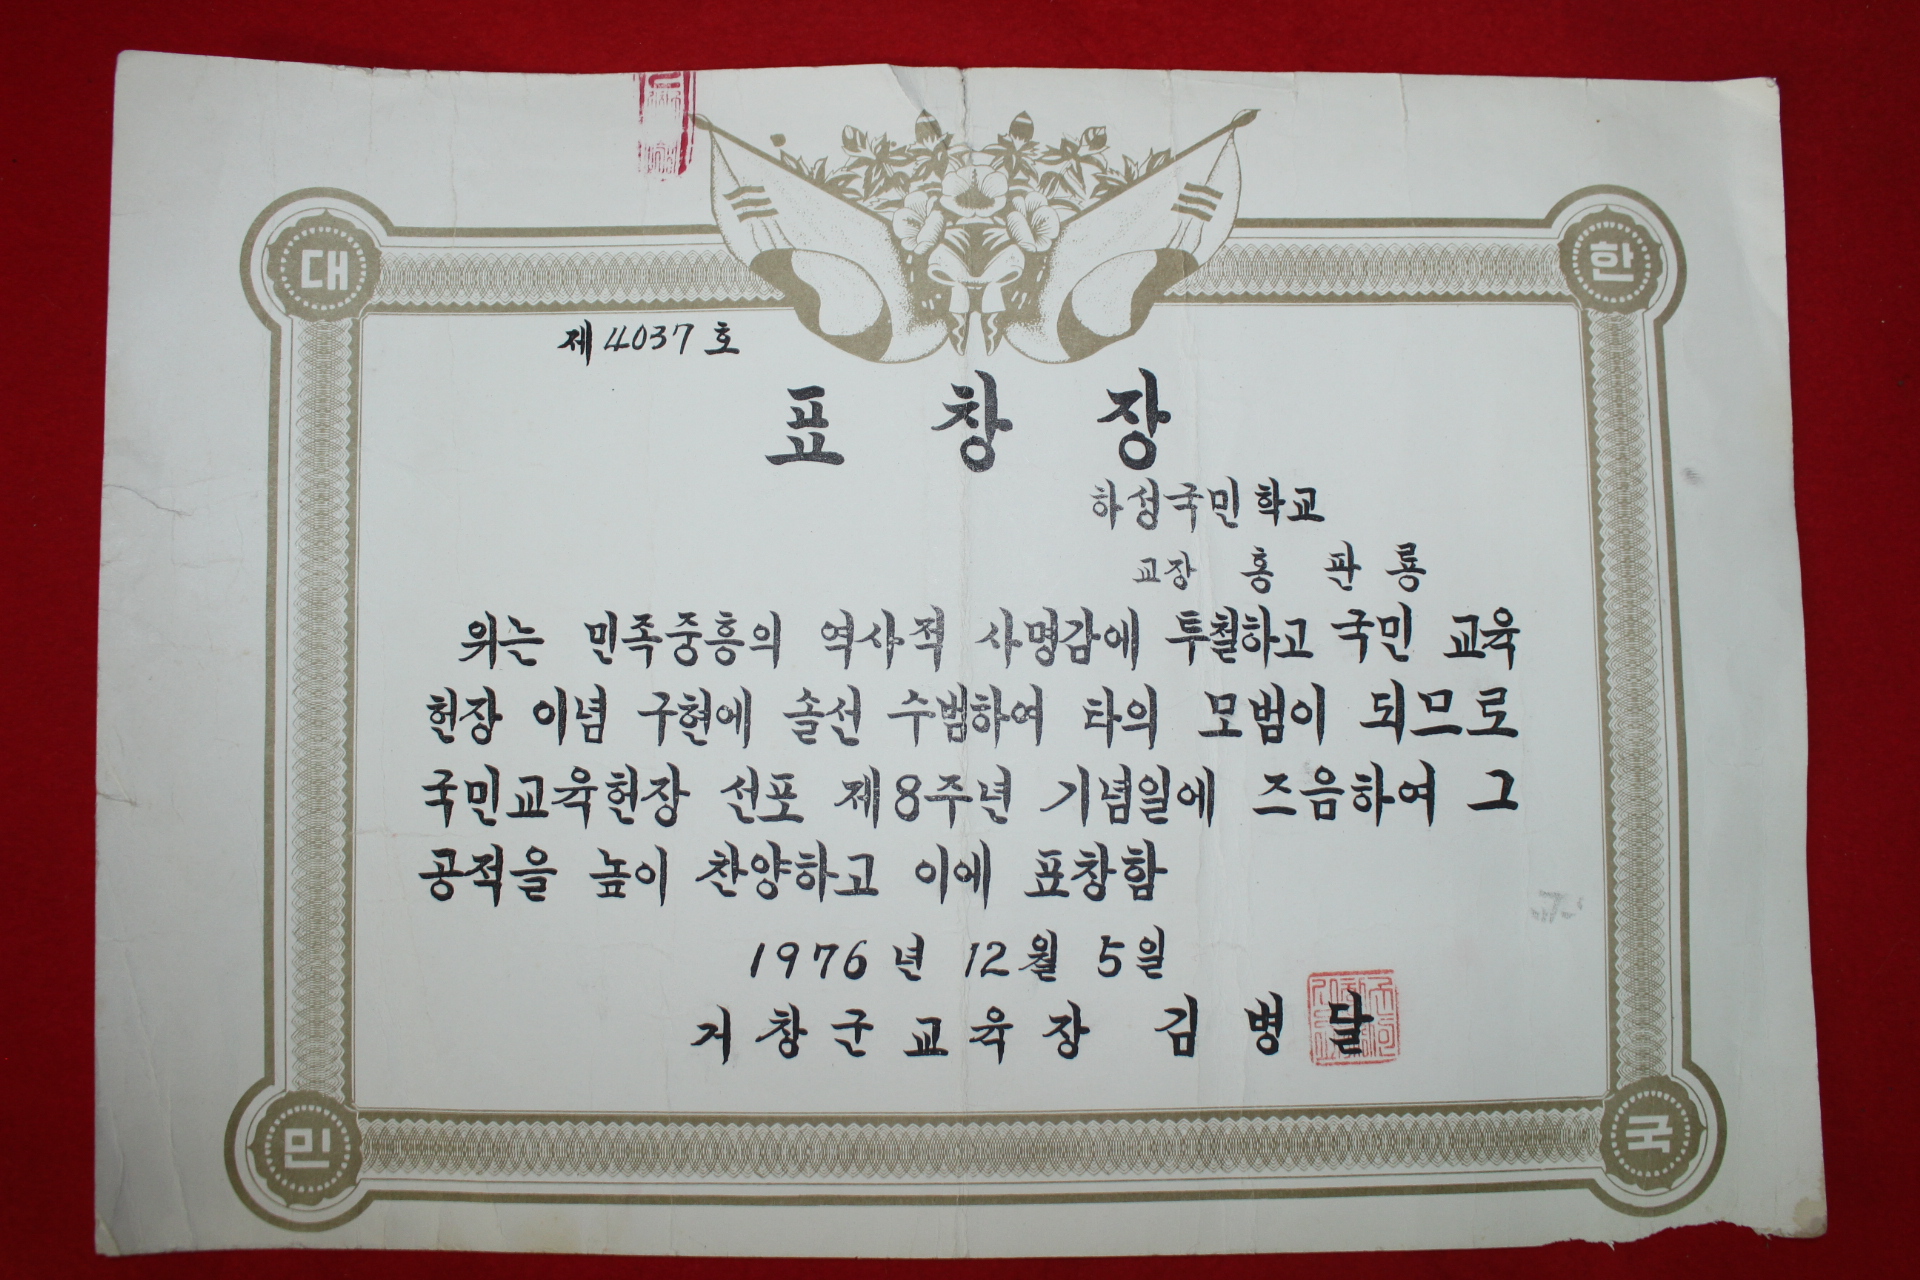 대 한
제 4037 호
표 창 장
하성국민학교
교장 홍 판 룡
위는 민족중흥의 역사적 사명감에 투철하고 국민 교육
헌장 이념 구현에 솔선 수범하여 타의 모범이 되므로
국민교육헌장 선포 제8주년 기념일에 즈음하여 그
공적을 높이 찬양하고 이에 표창함
1976년 12월 5일
거창군교육장 김 병 달
민 국